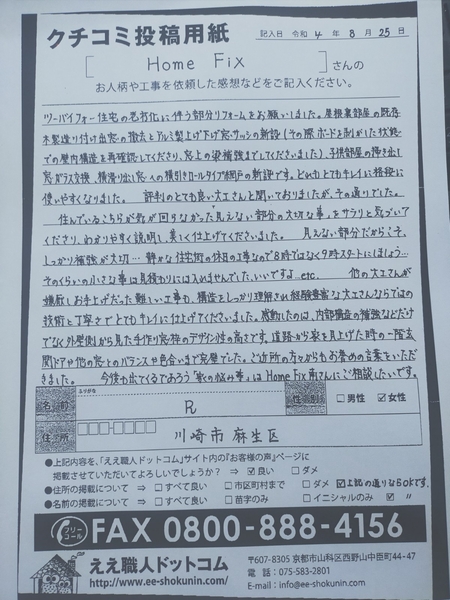 クチコミ投稿用紙
記入日 令和 4 年 8 月 25 日
[ Home Fix ] さんの
お人柄や工事を依頼した感想などをご記入ください。
ツーバイフォー住宅の老朽化に伴う部分リフォームをお願いしました。屋根裏部屋の既存
木製造り付け出窓の撤去とアルミ製上げ下げ窓サッシの新設(その際ボードを剥がした状態
での壁内構造を再確認してくださり、窓上の梁補強までしてくださいました)、子供部屋の掃き出し
窓ガラス交換、横滑り出し窓への横引きロールタイプ網戸の新設です。どれもとてもキレイに格段に
使いやすくなりました。 評判のとても良い大工さんと聞いておりましたが、その通りでした。
住んでいるこちらが気が回らなかった見えない部分の大切な事を、サラリと気づいて
くださり、わかりやすく説明し、美しく仕上げてくださいました。 見えない部分だからこそ、
しっかり補強が大切… 静かな住宅街の休日の工事なので8時ではなく9時スタートにほしょう…
そのくらいの小さな事は見積もりには入れませんでした、いいですよ…etc. 他の大工さんが
嫌厭しお手上げだった難しい工事も、構造をしっかり理解され経験豊富な大工さんならではの
技術と丁寧さでとてもキレイに仕上げてくださいました。感動したのは、内部構造の補強などだけ
でなく外壁側から見た手作り窓枠のデザイン性の高さです。道路から家を見上げた時の一階玄
関ドアや他の窓とのバランスや色合いまで完璧でした。ご近所の方々からもお誉めの言葉をいただ
きました。 今後も出てくるであろう「家の悩み事」は Home Fix 南さんにご相談したいです。
名前 ふりがな R 性別 □男性 ☑女性
住所 川崎市 麻生区
●上記内容を、「ええ職人ドットコム」サイト内の『お客様の声』ページに
掲載させていただいてよろしいでしょうか? ⇒ ☑良い □ダメ
●住所の掲載について ⇒ □すべて良い □市区町村まで □ダメ ☑上記の通りならOKです。
●名前の掲載について ⇒ □すべて良い □苗字のみ □イニシャルのみ ☑ 〃
フリーコール FAX 0800-888-4156
ええ職人ドットコム
http://www.ee-shokunin.com/
〒607-8305 京都市山科区西野山中臣町44-47
電話:075-583-2801
E-mail:info@ee-shokunin.com